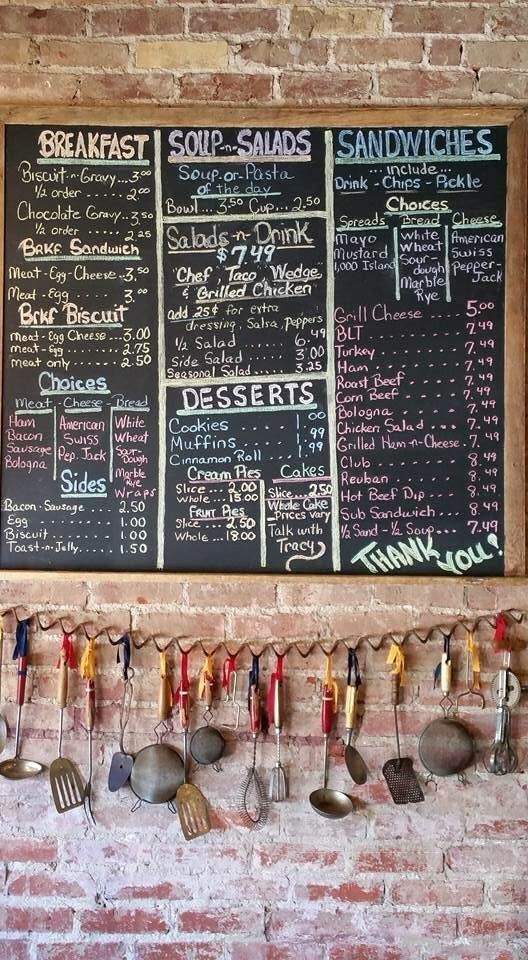 BREAKFAST
Biscuit-n-Gravy...3.00
1/2 order.....2.00
Chocolate Gravy..3.50
1/2 order.....2.25
BrKf Sandwich
Meat-Egg-Cheese..3.50
Meat-Egg....3.00
BrKf Biscuit
Meat-Egg Cheese...3.00
meat-Egg........2.75
meat only.......2.50
Choices
Meat-Cheese-Bread
Ham American White
Bacon Swiss Wheat
Sausage Pep. Jack Sour-Dough
Bologna Marble Rye
Wraps
Sides
Bacon-Sausage 2.50
Egg.......1.00
Biscuit.....1.00
Toast-n-Jelly.....1.50
SOUP-n-SALADS
Soup-or-Pasta
of the day
Bowl...3.50 Cup...2.50
Salads-n-Drink
$7.49
Chef, Taco, Wedge,
& Grilled Chicken
add 25¢ for extra
dressing, Salsa, Peppers
1/2 Salad.....6.49
Side Salad....3.00
Seasonal Salad.....3.25
DESSERTS
Cookies.....1.00
Muffins.....1.99
Cinnamon Roll..1.99
Cream Pies
Slice....2.00
Whole...15.00
FRUIT PIES
Slice....2.50
Whole...18.00
Cakes
Slice...2.50
Whole Cake
Prices vary
Talk with
Tracy
SANDWICHES
...include...
Drink-Chips-Pickle
Choices
Spreads Bread Cheese
Mayo White American
Mustard Wheat Swiss
1,000 Island Sour-dough Pepper-Jack
Marble Rye
Grill Cheese.....5.00
BLT.......7.49
Turkey.......7.49
Ham.......7.49
Roast Beef.....7.49
Corn Beef.....7.49
Bologna.......7.49
Chicken Salad....7.49
Grilled Ham-n-Cheese.7.49
Club.......8.49
Reuban.......8.49
Hot Beef Dip...8.49
Sub Sandwich...8.49
1/2 Sand-1/2 Soup...7.49
THANK YOU!